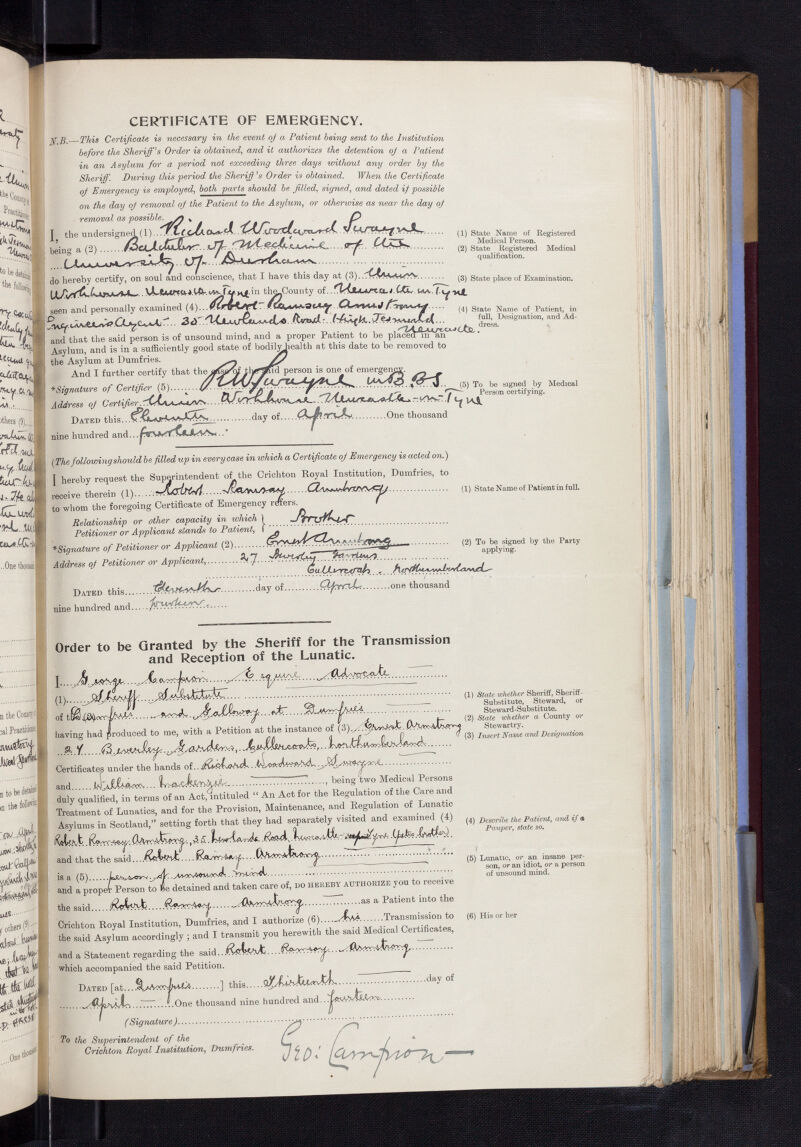 CERTIFICATE OF EMERGENCY.
N.B.—This Certificate is necessary in the event of a Patient being sent to the Institution
before the Sheriff's Order is obtained, and it authorizes the detention of a Patient
in an Asylum for a period not exceeding three days without any order by the
Sheriff. During this period the Sheriff's Order is obtained. When the Certificate
of Emergency is employed, both parts should be filled, signed, and dated if possible
on the day of removal of the Patient to the Asylum, or otherwise as near the day of
removal as possible.
I, the undersigned (1) Richard Woodward Swayne
being a (2) Batchelor of Medicine of the
University of Durham
do hereby certify, on soul and conscience, that I have this day at (3) Union
Workhouse Newcastle on Tyne in the County of Newcastle on Tyne
seen and personally examined (4) Robert Ramsay Armstrong
Engineers Agent 35 Newlands Road High Jesmond
Newcastle.
and that the said person is of unsound mind, and a proper Patient to be placed in an
Asylum, and is in a sufficiently good state of bodily health at this date to be removed to
the Asylum at Dumfries.
And I further certify that the case of the said person is one of emergency.
*Signature of Certifier (5) RW Swayne M.B. B.S.
Address of Certifier Union Workhouse Newcastle-on-Tyne
DATED this Eleventh day of April One thousand
nine hundred and fourteen.
(1) State Name of Registered
Medical Person.
(2) State Registered Medical
qualification.
(3) State place of Examination.
(4) State Name of Patient, in
full, Designation, and Ad-
dress.
(5) To be signed by Medical
Person certifying.
(The following should be filled up in every case in which a Certificate of Emergency is acted on.)
I hereby request the Superintendent of the Crichton Royal Institution, Dumfries, to
receive therein (1) Robert Ramsay Armstrong
to whom the foregoing Certificate of Emergency refers.
Relationship or other capacity in which
Petitioner or Applicant stands to Patient, } Brother
*Signature of Petitioner or Applicant (2) Ernest Armstrong
Address of Petitioner or Applicant, 27 Beverley Gardens
Cullercoats. Northumberland
DATED this Eleventh day of April one thousand
nine hundred and fourteen.
(1) State Name of Patient in full.
(2) To be signed by the Party
applying.
Order to be Granted by the Sheriff for the Transmission
and Reception of the Lunatic.
I George Campion Esquire Advocate
(1) Sheriff Substitute
of the Dumfries and Galloway at Dumfries
having had produced to me, with a Petition at the instance of (3) Ernest Armstrong
27 Beverley Gardens, Cullercoats, Northumberland
Certificates under the hands of Richard Woodward Swayne
and William Mackenzie, being two Medical Persons
duly qualified, in terms of an Act, intituled "An Act for the Regulation of the Care and
Treatment of Lunatics, and for the Provision, Maintenance, and Regulation of Lunatic
Asylums in Scotland," setting forth that they had separately visited and examined (4)
Robert Ramsay Armstrong, 35 Newlands Road, Newcastle Tyne brother)
and that the said Robert Ramsay Armstrong
is a (5) person of unsound mind
and a proper Person to be detained and taken care of, DO HEREBY AUTHORIZE you to receive
the said Robert Ramsay Armstrong as a Patient into the
Crichton Royal Institution, Dumfries, and I authorize (6) his Transmission to
the said Asylum accordingly; and I transmit you herewith the said Medical Certificates,
and a Statement regarding the said Robert Ramsay Armstrong
which accompanied the said Petition.
DATED [at Dumfries] this Thirteenth day of
April One thousand nine hundred and fourteen
(Signature)
To the Superintendent of the
Crichton Royal Institution, Dumfries.
Geo: Campion
(1) State whether Sheriff, Sheriff-
Substitute, Steward, or
Steward-Substitute.
(2) State whether a County or
Stewartry.
(3) Insert Name and Designation
(4) Describe the Patient, and if a
Pauper, state so.
(5) Lunatic, or an insane per-
son, or an idiot, or a person
of unsound mind.
(6) His or her